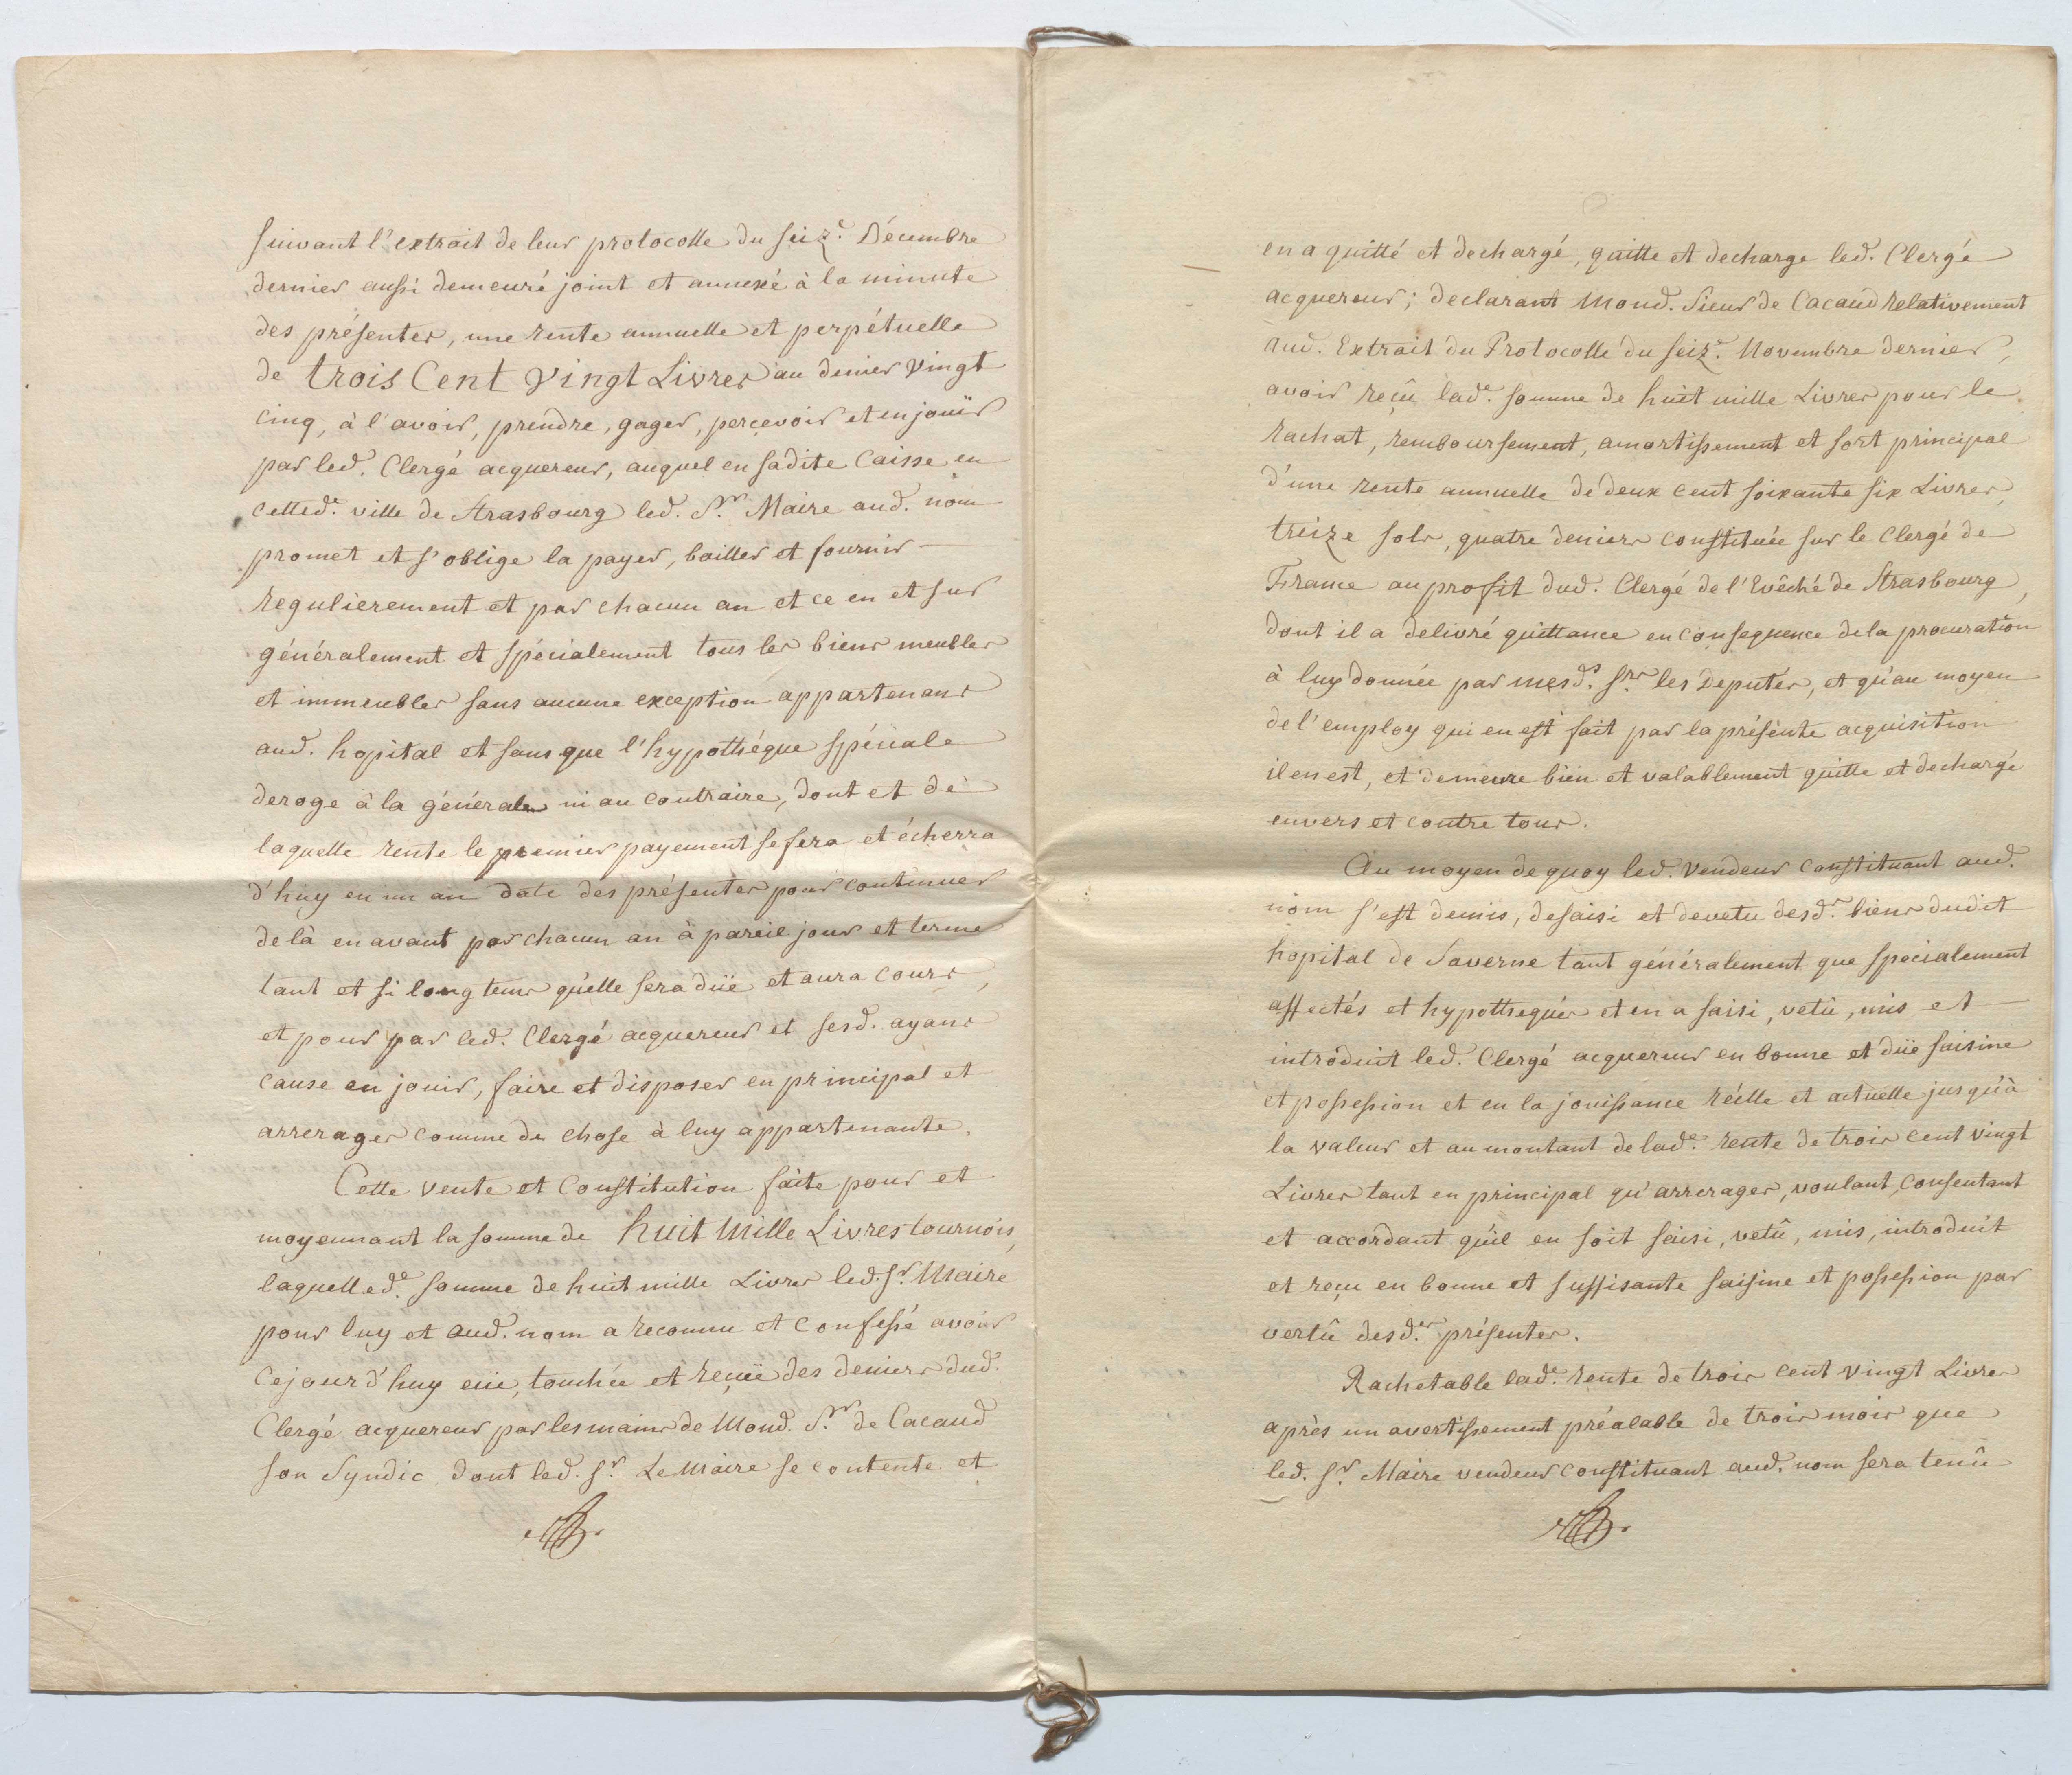 suivant l'extrait de leur protocolle du seiz.e Décembre
dernier aussi demeuré joint et annexé à la minute
des présentes, une rente annuelle et perpétuelle
de trois Cent Vingt Livres au denier Vingt
cinq, à l'avoir, prendre, gager, perçevoir et en jouïr
par led. Clergé acquereur, auquel en sadite Caisse en
cetted.e ville de Strasbourg led. S.r Maire aud. nom
promet et s'oblige la payer, bailler et fournir
regulierement et par chacun an et ce en et sur
généralement et spécialement tous les biens meubles
et immeubles sans aucune exception appartenans
aud. hopital et sans que l'hypothéque spéciale
deroge à la générale ni au contraire, dont et de
laquelle rente le premier payement se fera et écherra
d'huy en un an date des présentes pour continuer
de là en avant par chacun an à pareil jour et terme
tant et si longtems qu'elle sera düe et aura cours,
et pour par led. Clergé acquereur et sesd. ayans
cause en jouir, faire et disposer en principal et
arrerages comme de chose à luy appartenante.
Cette vente et Constitution faite pour et
moyennant la somme de huit Mille Livres tournois,
laquelled.e somme de huit mille Livres led. S.r Maire
pour luy et aud. nom a reconnu et confessé avoir
Cejourd'huy eüe, touchée et reçüe des deniers dud.
Clergé acquereur par les mains de Mond. S.r de Cacaud
son Syndic, dont led. S.r Le Maire se contente et
en a quitté et dechargé, quitte et decharge led. Clergé
acquereur; declarant Mond. Sieur de Cacaud relativement
aud. Extrait du Protocolle du seiz.e Novembre dernier,
avoir reçû lad.e somme de huit mille Livres pour le
rachat, remboursement, amortissement et sort principal
d'une rente annuelle de deux cent soixante six Livres,
treize sols, quatre deniers constituée sur le Clergé de
France au profit dud. Clergé de l'Evêché de Strasbourg,
dont il a delivré quittance en consequence de la procuration
à luy donnée par mesd.s S.rs les Deputés, et qu'au moyen
de l'employ qui en est fait par la présente acquisition
il en est, et demeure bien et valablement quitte et dechargé
envers et contre tous.
Au moyen de quoy led. vendeur constituant aud.
nom s'est demis, desaisi et devetu desd.s biens dudit
hopital de Saverne tant généralement que specialement
affectés et hypothequés et en a saisi, vetû, mis et
introduit led. Clergé acquereur en bonne et düe saisine
et possession et en la jouissance réelle et actuelle jusqu'à
la valeur et au montant de lad.e rente de trois cent vingt
Livres tant en principal qu'arrerages, voulant, consentant
et accordant qu'il en soit saisi, vetû, mis, introduit
et reçu en bonne et suffisante saisine et possession par
vertû desd.es présentes.
Rachetable lad.e rente de trois cent vingt Livres
après un avertissement préalable de trois mois que
led. S.r Maire vendeur constituant aud. nom sera tenû